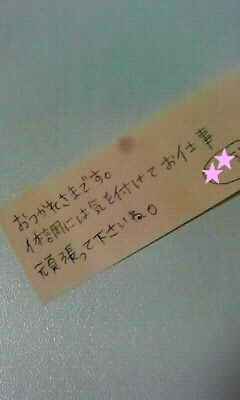 おつかれさまです。
体調には気を付けてお仕事
頑張って下さいね。